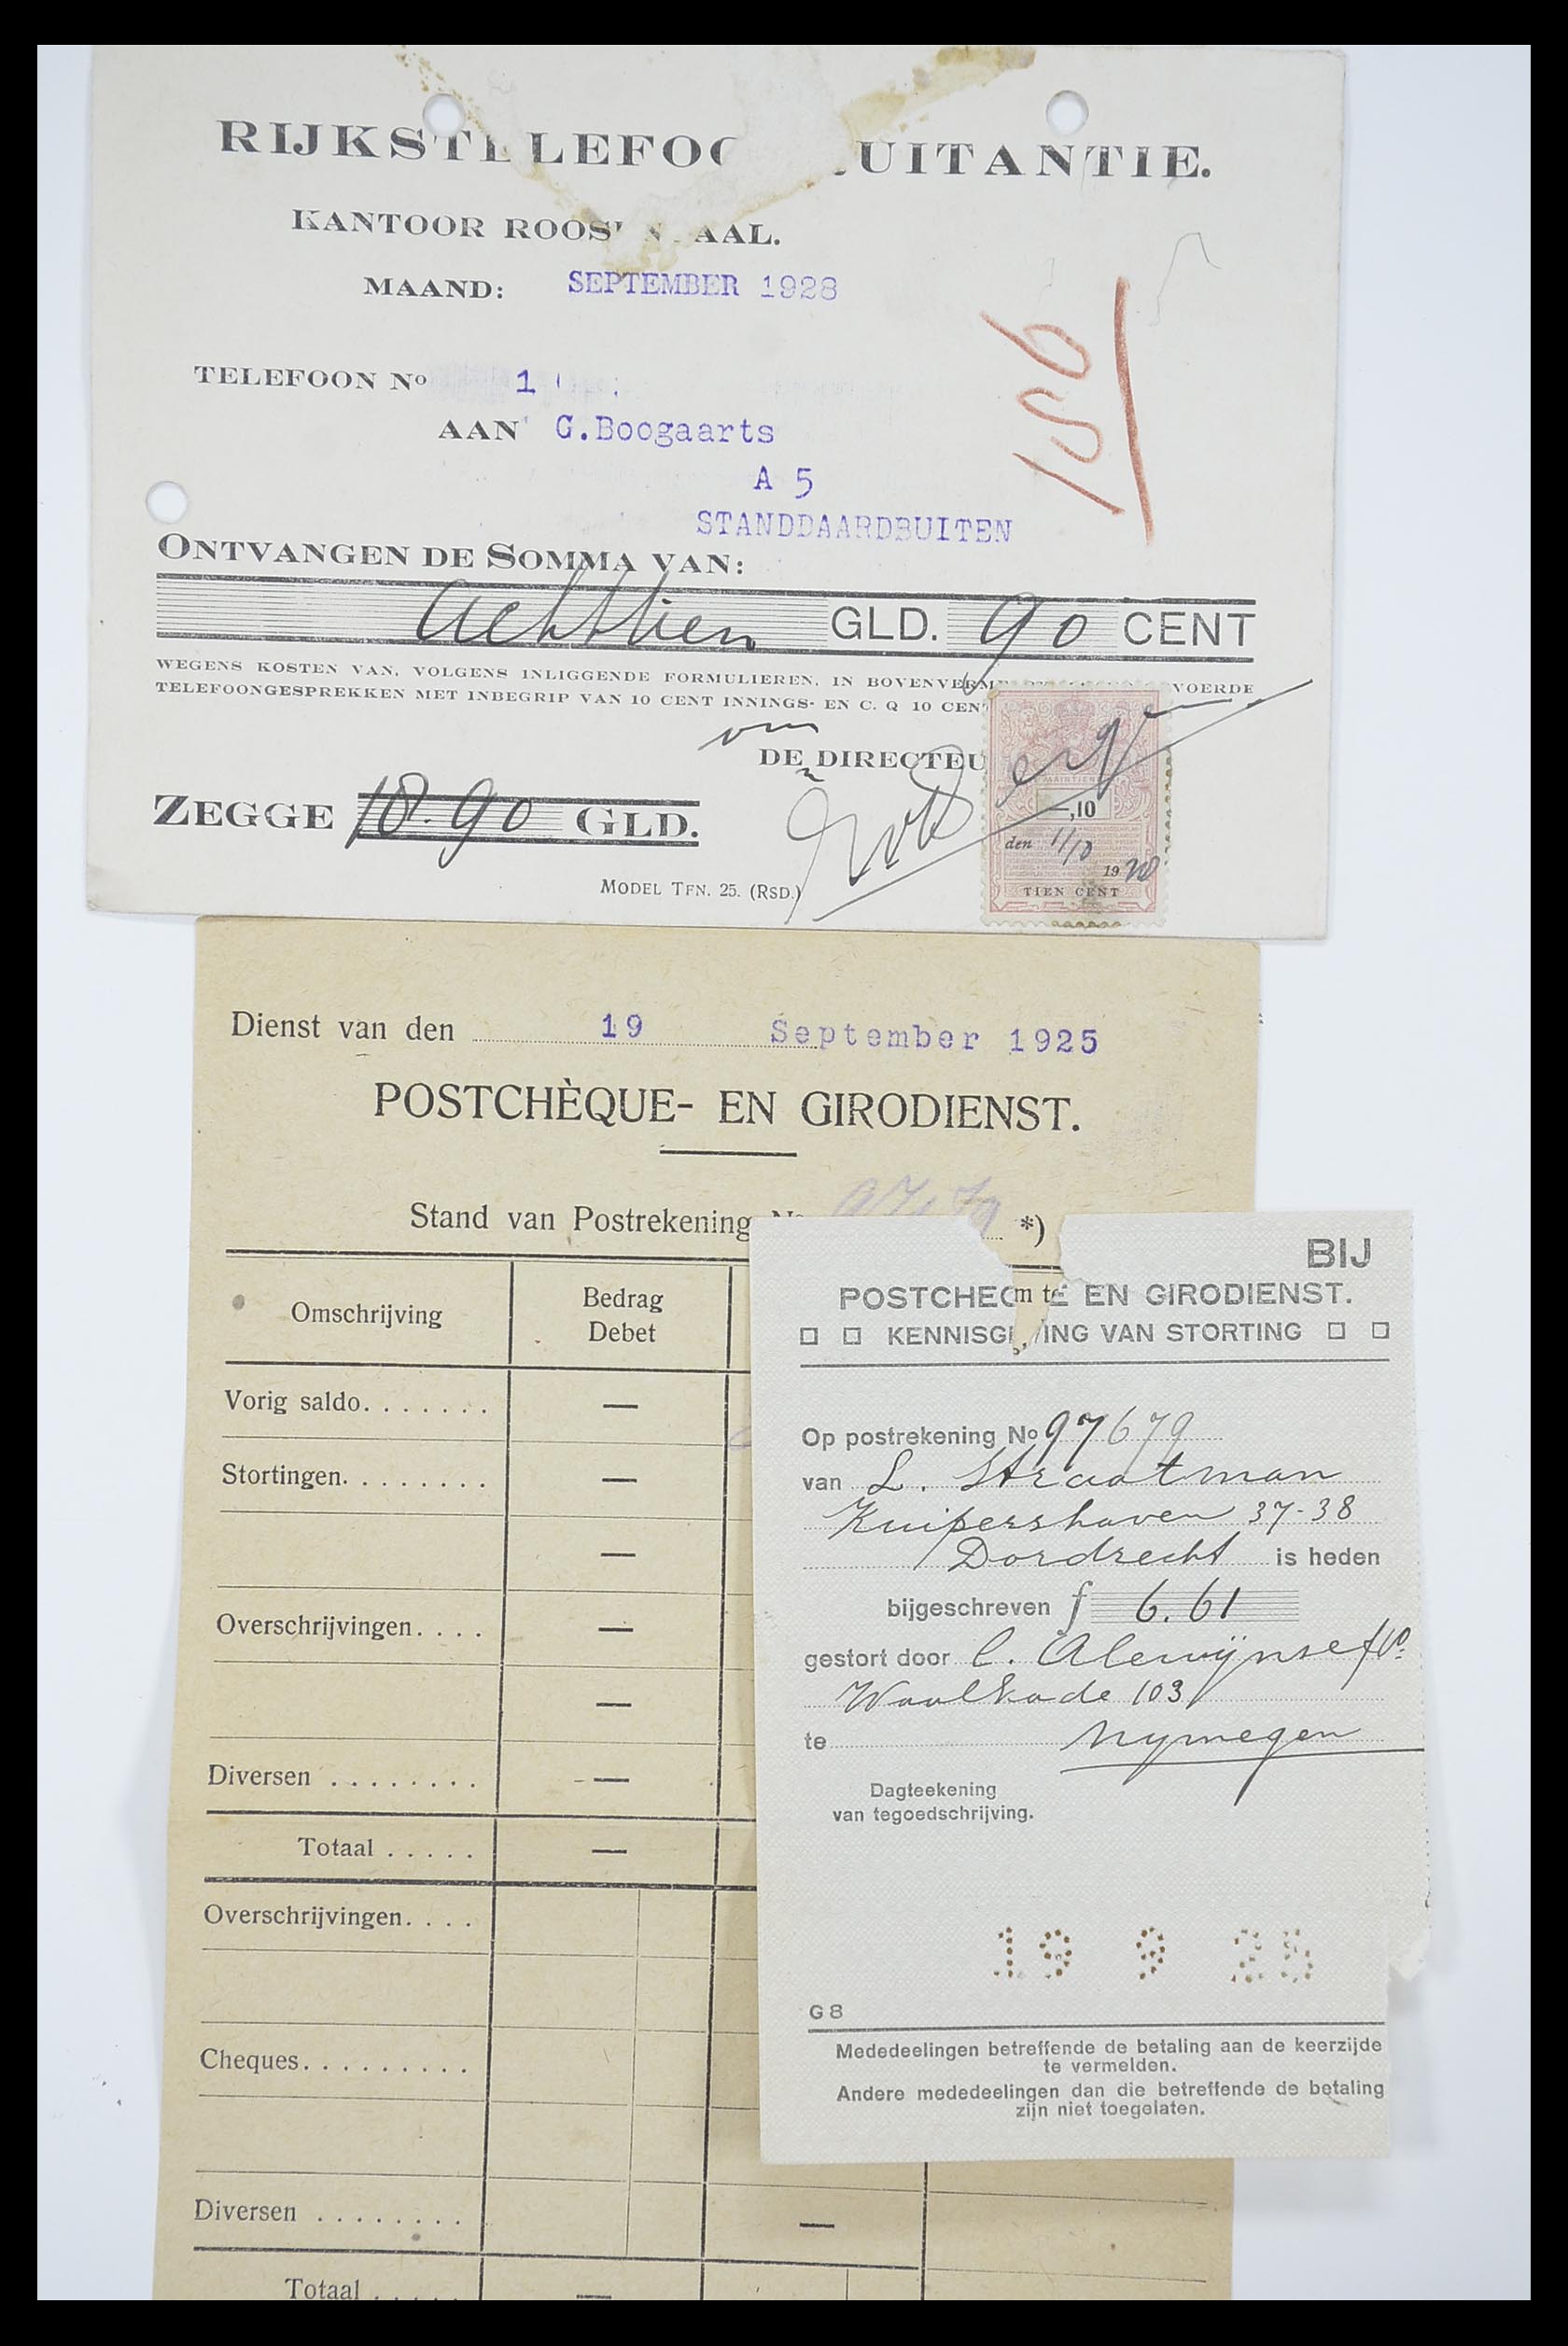 RIJKSTELEFOO UITANTIE.
KANTOOR ROOS N AAL.
MAAND: SEPTEMBER 1928
186
TELEFOON No 1
AAN G.Boogaarts
A 5
STANDDAARDBUITEN
ONTVANGEN DE SOMMA VAN:
Achttien GLD. 90 CENT
WEGENS KOSTEN VAN, VOLGENS INLIGGENDE FORMULIEREN, IN BOVENVERME VOERDE
TELEFOONGESPREKKEN MET INBEGRIP VAN 10 CENT INNINGS- EN C. Q 10 CEN
DE DIRECTEU
ZEGGE 18.90 GLD.
MODEL TFN. 25. (RSD.)
-,10
den 1/10
19 28
TIEN CENT
Dienst van den 19 September 1925
POSTCHÈQUE- EN GIRODIENST.
Stand van Postrekening No *)
Omschrijving
Bedrag
Debet
Vorig saldo. . . . . . . —
Stortingen. . . . . . . . —
—
Overschrijvingen. . . . —
—
Diversen . . . . . . . . —
Totaal . . . . . —
Overschrijvingen. . . .
Cheques. . . . . . . . .
Diversen . . . . . . . . —
Totaal . . . . . —
BIJ
POSTCHEC m te E EN GIRODIENST.
KENNISGEVING VAN STORTING
Op postrekening No 97679
van L. Straatman
Kuipershaven 37-38
Dordrecht is heden
bijgeschreven f 6.61
gestort door C. Alewijnse
Waalkade 103
te Nymegen
Dagteekening
van tegoedschrijving.
19 9 25
G 8
Mededeelingen betreffende de betaling aan de keerzijde
te vermelden.
Andere mededeelingen dan die betreffende de betaling
zijn niet toegelaten.